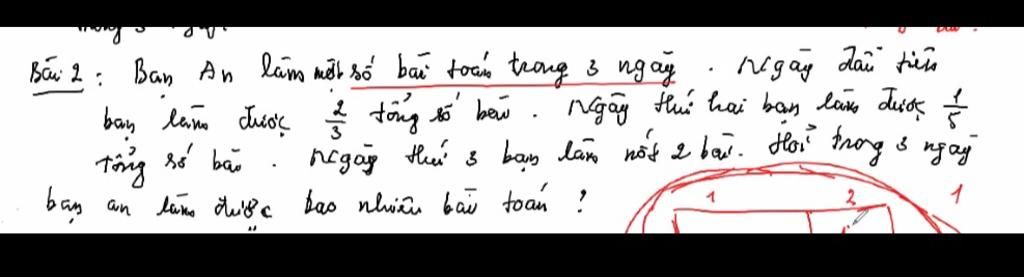 Bài 2 : Bạn An làm một số bài toán trong 3 ngày . Ngày đầu tiên
bạn làm được 2/3 tổng số bài . Ngày thứ hai bạn làm được 1/5
tổng số bài . Ngày thứ 3 bạn làm nốt 2 bài . Hỏi trong 3 ngày
bạn an làm được bao nhiêu bài toán ?
1 2 1